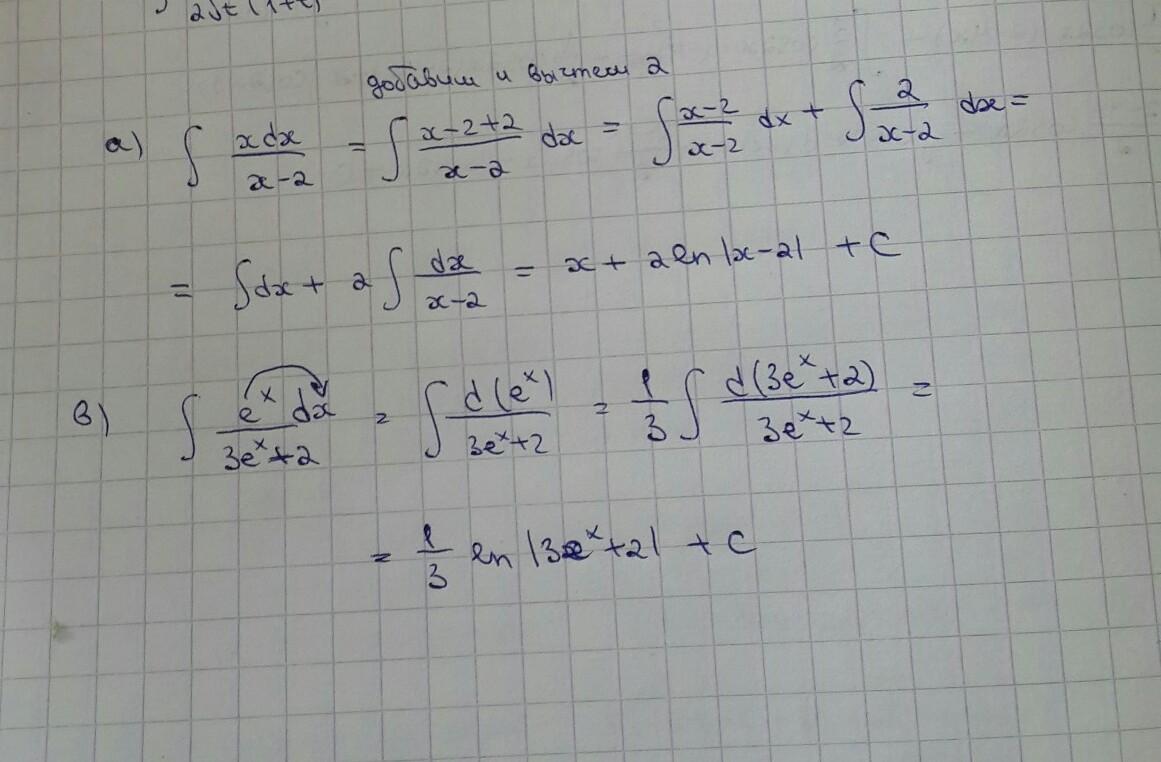 2√t (1+t)
добавим и вычтем 2
а) ∫ xdx/(x-2) = ∫ (x-2+2)/(x-2) dx = ∫ (x-2)/(x-2) dx + ∫ 2/(x-2) dx =
= ∫dx + 2∫ dx/(x-2) = x + 2ln|x-2| + C
в) ∫ e^x dx/(3e^x+2) = ∫ d(e^x)/(3e^x+2) = 1/3 ∫ d(3e^x+2)/(3e^x+2) =
= 1/3 ln|3e^x+2| + C